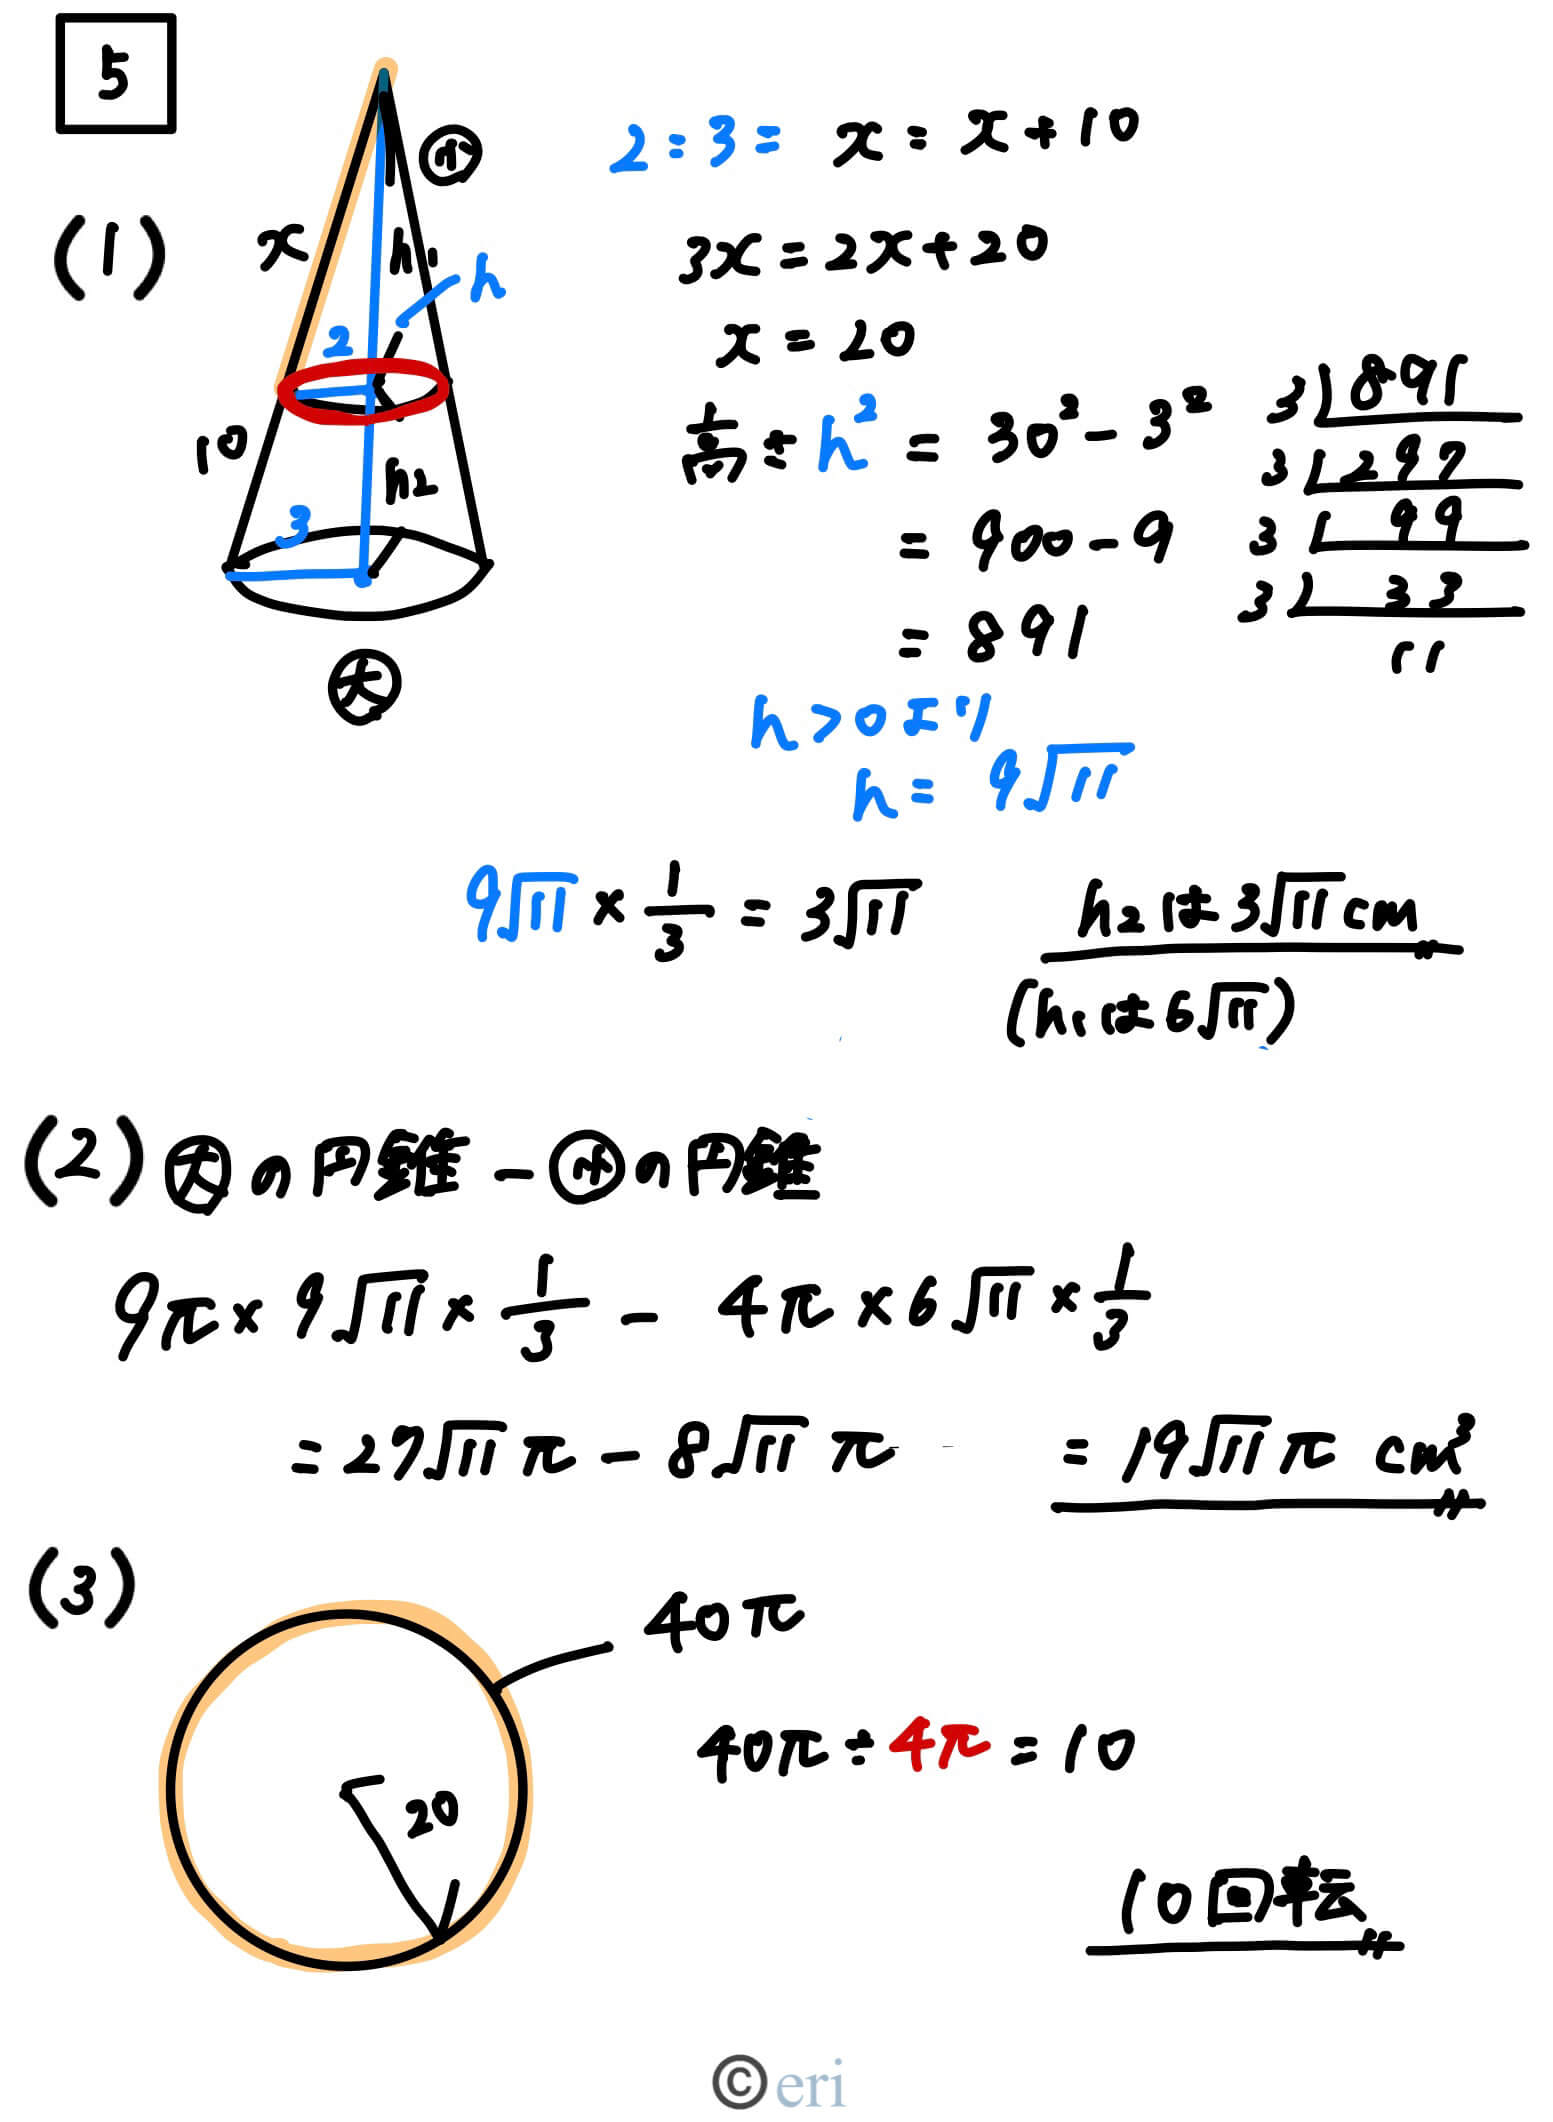 5
(1)
小
x
h1
h
2
10
h2
3
大
2:3= x:x+10
3x=2x+20
x=20
高さh²=30²-3²
=900-9
=891
3)891
3)297
3)99
3)33
11
h>0より
h=9√11
9√11×1/3=3√11
h2は3√11cm
(h1は6√11)
(2) 大の円錐-小の円錐
9π×9√11×1/3-4π×6√11×1/3
=27√11π-8√11π =19√11π cm³
(3)
40π
20
40π÷4π=10
10回転
©eri